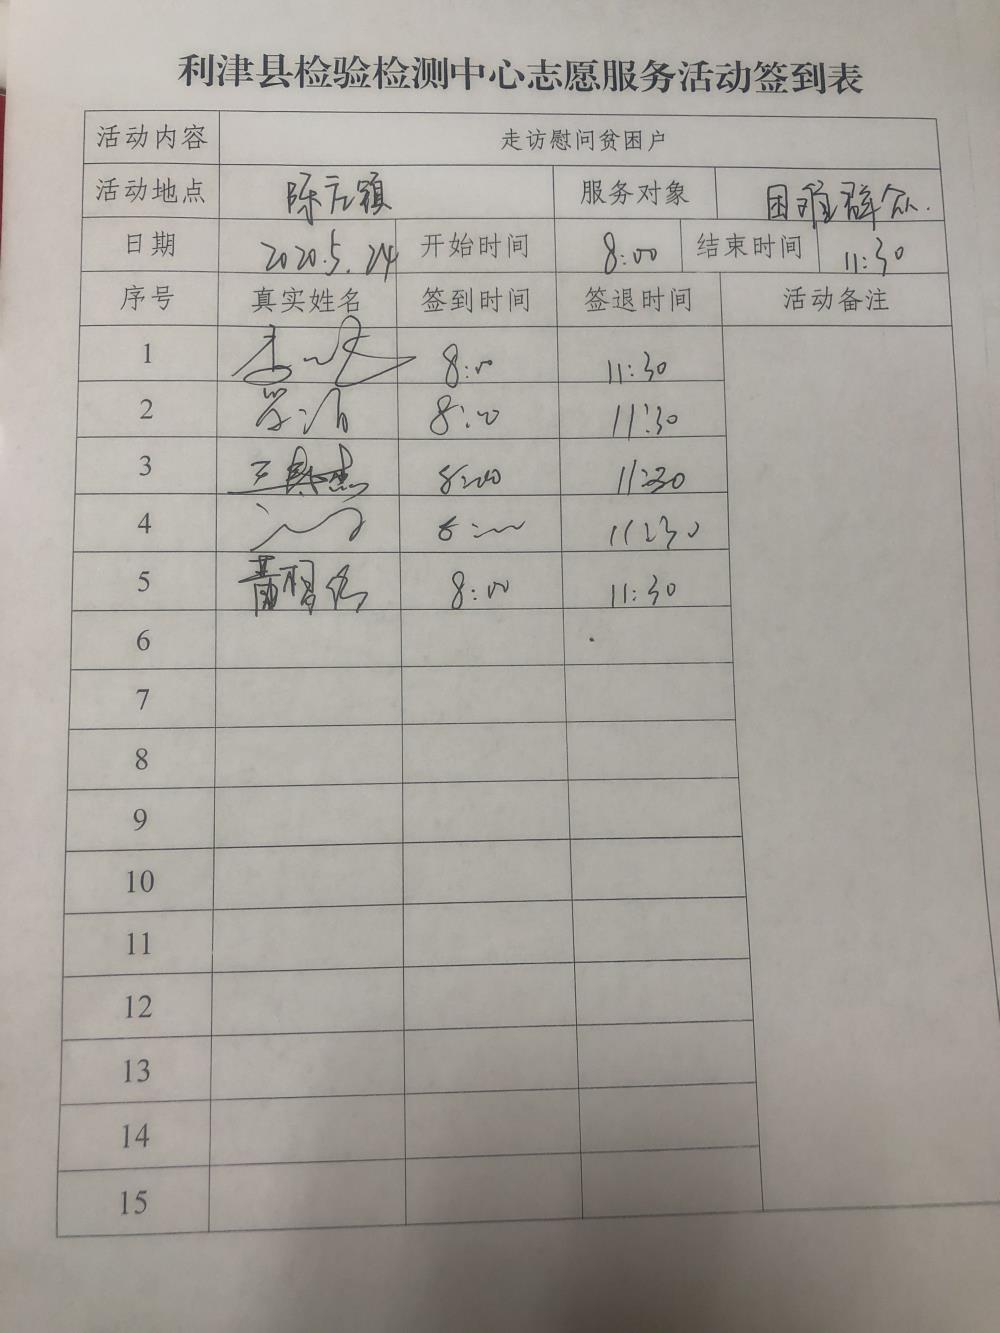 利津县检验检测中心志愿服务活动签到表
活动内容 走访慰问贫困户
活动地点 陈庄镇 服务对象 困难群众.
日期 2020.5.24 开始时间 8:00 结束时间 11:30
序号 真实姓名 签到时间 签退时间 活动备注
1 8:00 11:30
2 8:00 11:30
3 8:00 11:30
4 8:00 11:30
5 8:00 11:30
6
7
8
9
10
11
12
13
14
15